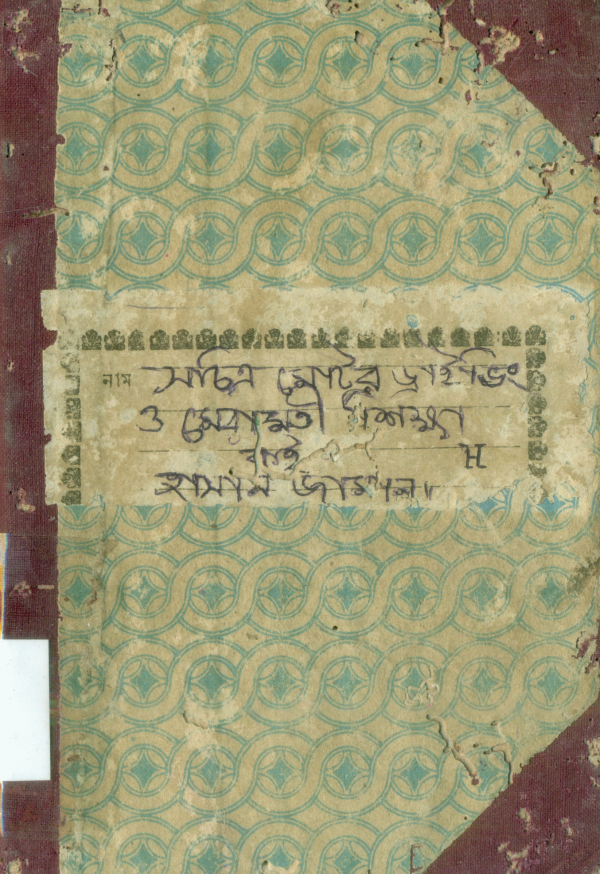 নাম সচিত্র মোটর ড্রাইভিং
ও মেরামতী শিক্ষা
বাই H
হাসান জামাল।